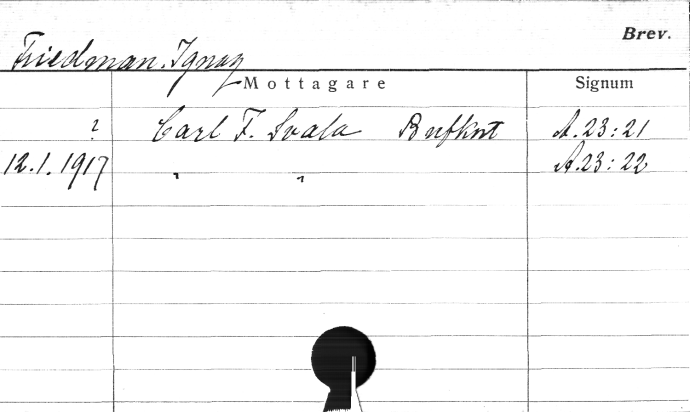 Brev.
Friedman, Ignaz
Mottagare Signum
? Carl F. Svala Brefkort A.23:21
12.1.1917 " " A.23:22